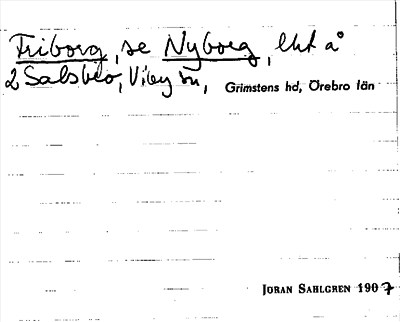 Friborg, se Nyborg, lht å
2 Salsbro, Viby sn, Grimstens hd, Örebro län
JÖRAN SAHLGREN 1907